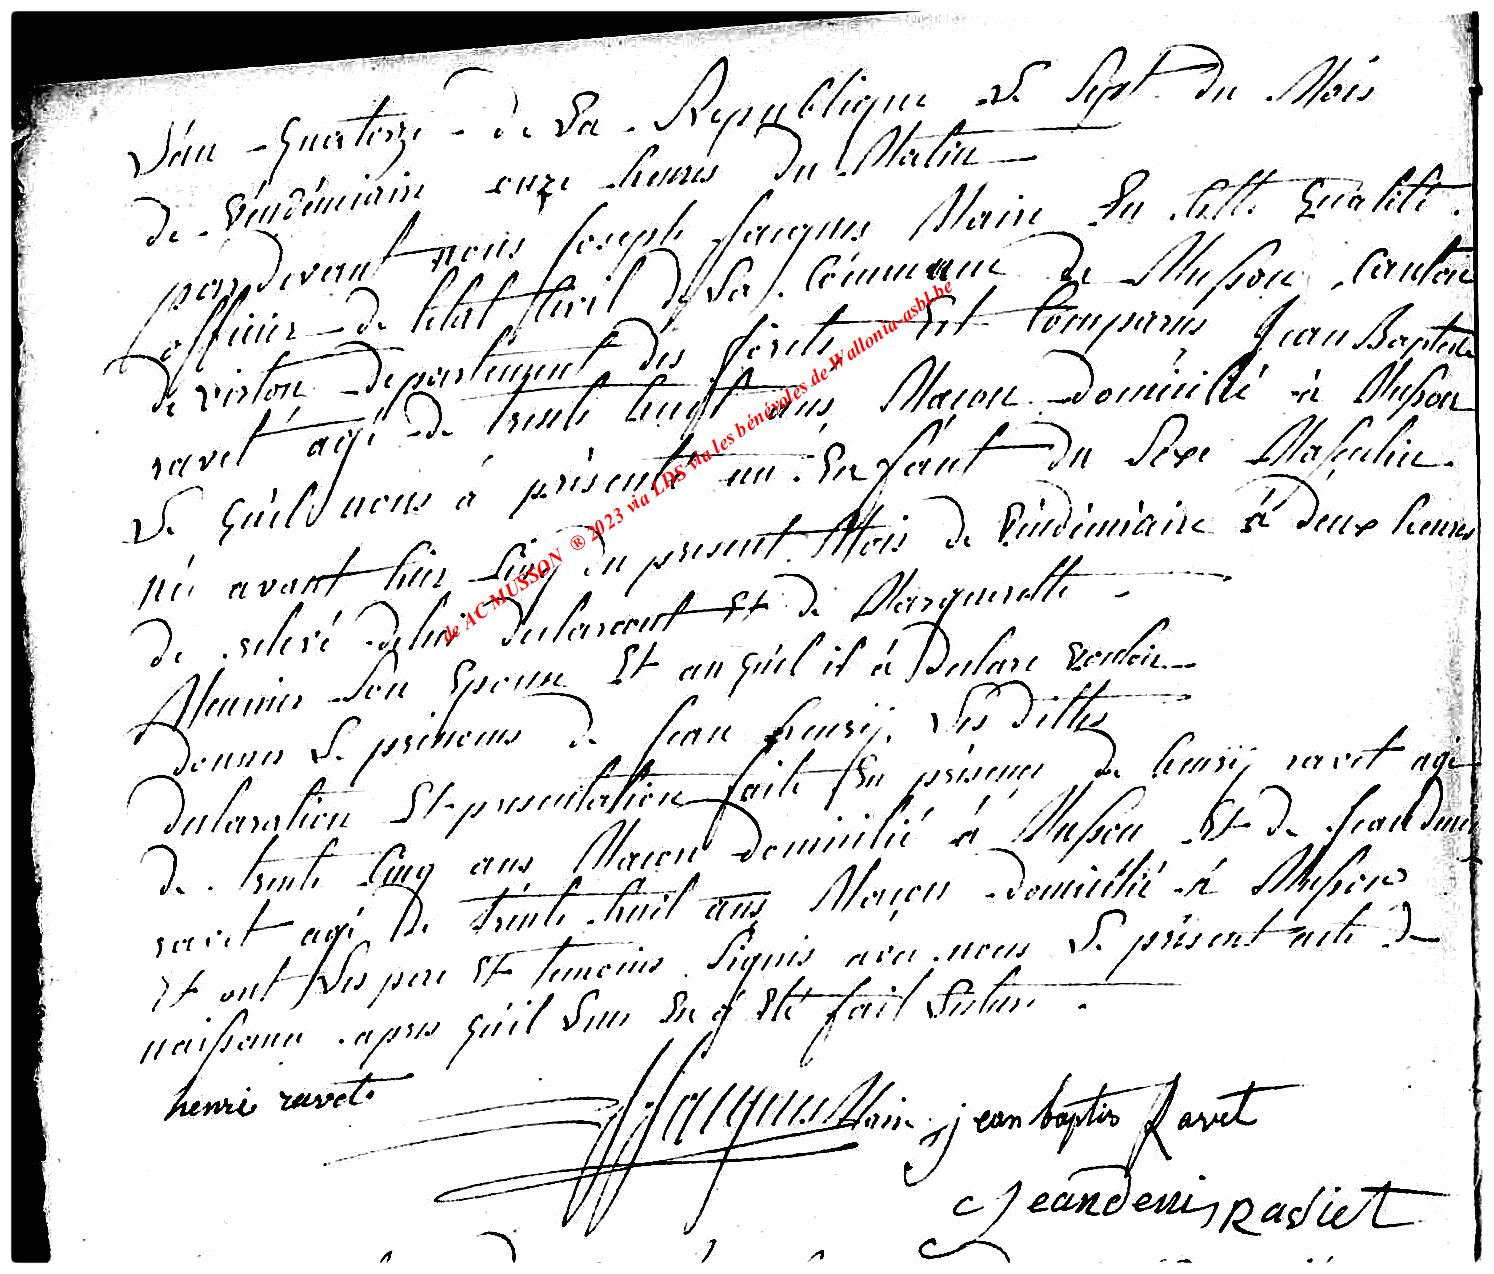 L'an quatorze de la Republique le sept du Mois
de vendémiaire onze heures du Matin
pardevant nous Joseph Jacques Maire En cette qualité
officier de l'état Civil de la Commune de Musson Canton
de virton departement des forêts Est Comparus Jean Baptiste
ravet agé de trente huit ans Maçon domicilié à Musson
Le quel nous à présenté un Enfant du Sexe Masculin
né avant hier Cinq du present Mois de Vendémiaire à deux heures
de relevé de lui declarant Et de Marguerette
Meunier Son Epouse Et au quel il à declare vouloir
donner le prénoms de Jean henrÿ, Les dittes
declaration Et presentation faite En présence de henrÿ ravet agé
de trente Cinq ans Macon domicilié à Musson Et de Jean Denis
ravet agé de trente huit ans Maçon domicilié à Musson
Et ont les pere Et temoins Signés avec nous Le présent acte de
naissance apres qu'il Leur En a Eté fait Lecture
henri ravet
J Jacques Maire jean baptis Ravet
Jean denis Raviet
de AC MUSSON ® 2023 via LDS via les bénévoles de Wallonia-asbl.be